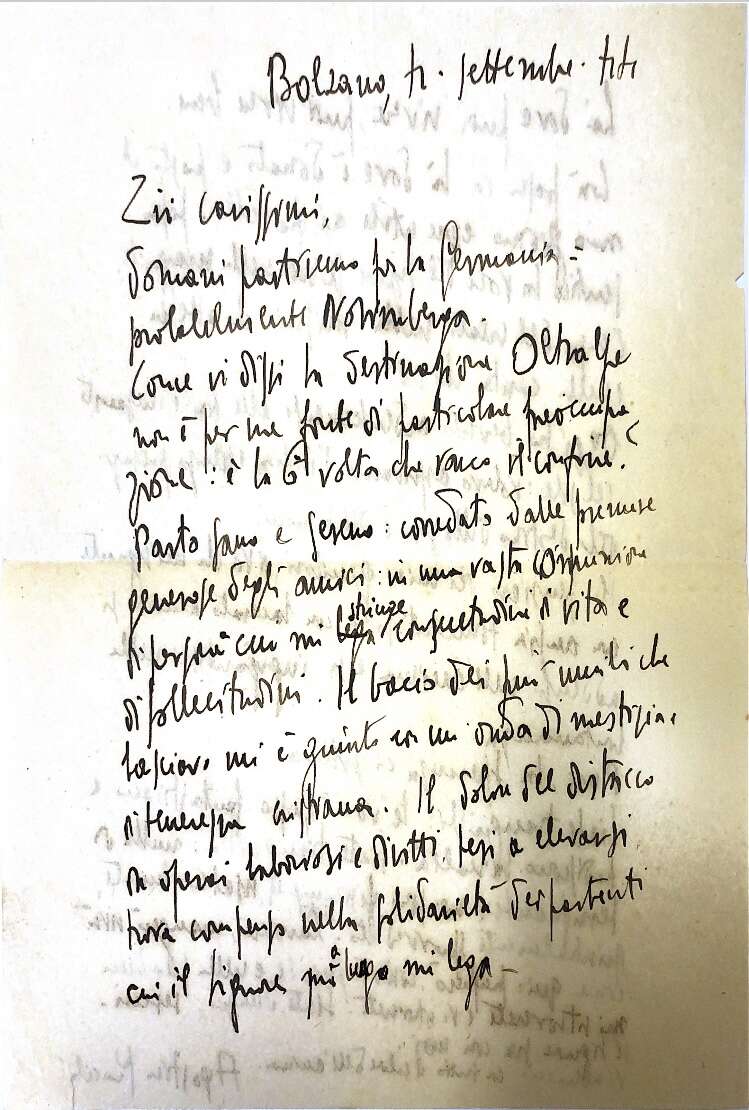 Bolzano, settembre 44
Zii carissimi,
domani partiremo per la Germania -
probabilmente Norimberga.
Come vi dissi la destinazione Oltralpe
non è per me fonte di particolare preoccupa
zione: è la 6ª volta che varco il confine.
Parto sano e sereno: corredato dalle premure
generose degli amici: in una vasta comunione
di persone cui mi stringe consuetudini di vita e
di sollecitudini. Il bacio dei più umili che
lasciavo mi è giunto con un onda di mestizia e
di tenerezza cristiana. Il dolore del distacco
da operai laboriosi e diritti, tesi a elevarsi
trova compenso nella solidarietà dei partenti
cui il Signore più a lungo mi lega -